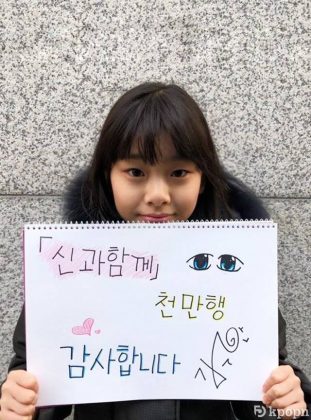 「신과함께」
천만행
감사합니다
kpopn